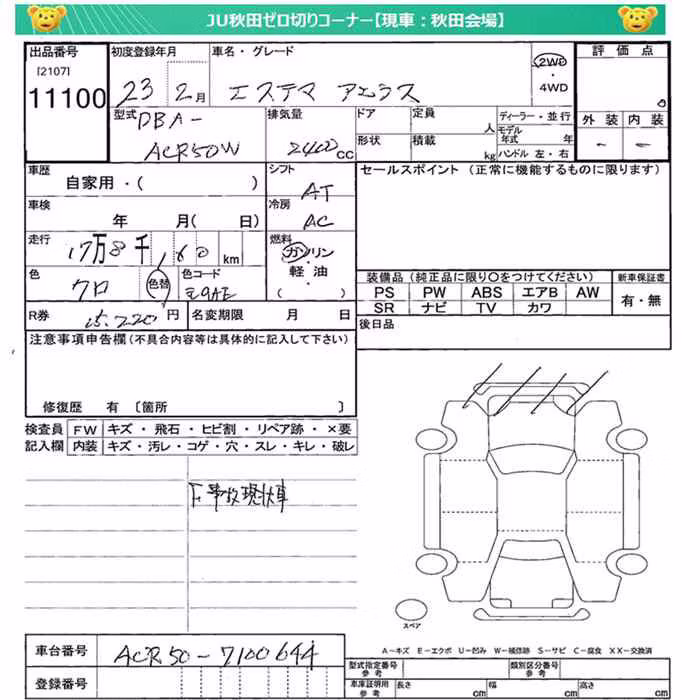 JU秋田ゼロ切りコーナー【現車:秋田会場】
出品番号 初度登録年月 車名・グレード 評価点
[2107]
11100
23 2月 エスティマ アエラス
2WD
・
4WD
0
型式 排気量 ドア 定員 人 ディーラー・並行 外装 内装
DBA-
ACR50W
2400cc
形状 積載 kg
モデル年式 年
ハンドル 左・右
- -
車歴
自家用・( )
シフト
AT
セールスポイント (正常に機能するものに限ります)
車検
年 月( 日)
冷房
AC
走行
17万8千,60 km
燃料
ガソリン
・
軽油
・
( )
色
クロ
色替
色コード
装備品 (純正品に限り○をつけてください) 新車保証書
PS PW ABS エアB AW
SR ナビ TV カワ
有・無
R券 15,220円 名変期限 月 日
後日品
注意事項申告欄(不具合内容等は具体的に記入して下さい)
修復歴 有 〔箇所 〕
検査員 FW キズ・飛石・ヒビ割・リペア跡・×要
記入欄 内装 キズ・汚レ・コゲ・穴・スレ・キレ・破レ
F事故現状車
スペア
A−キズ E−エクボ U−凹み W−補修跡 S−サビ C−腐食 XX−交換済
車台番号 ACR50-7100644
登録番号
型式指定番号 参考 類別区分番号 参考
車庫証明用 参考 長さ cm 幅 cm 高さ cm